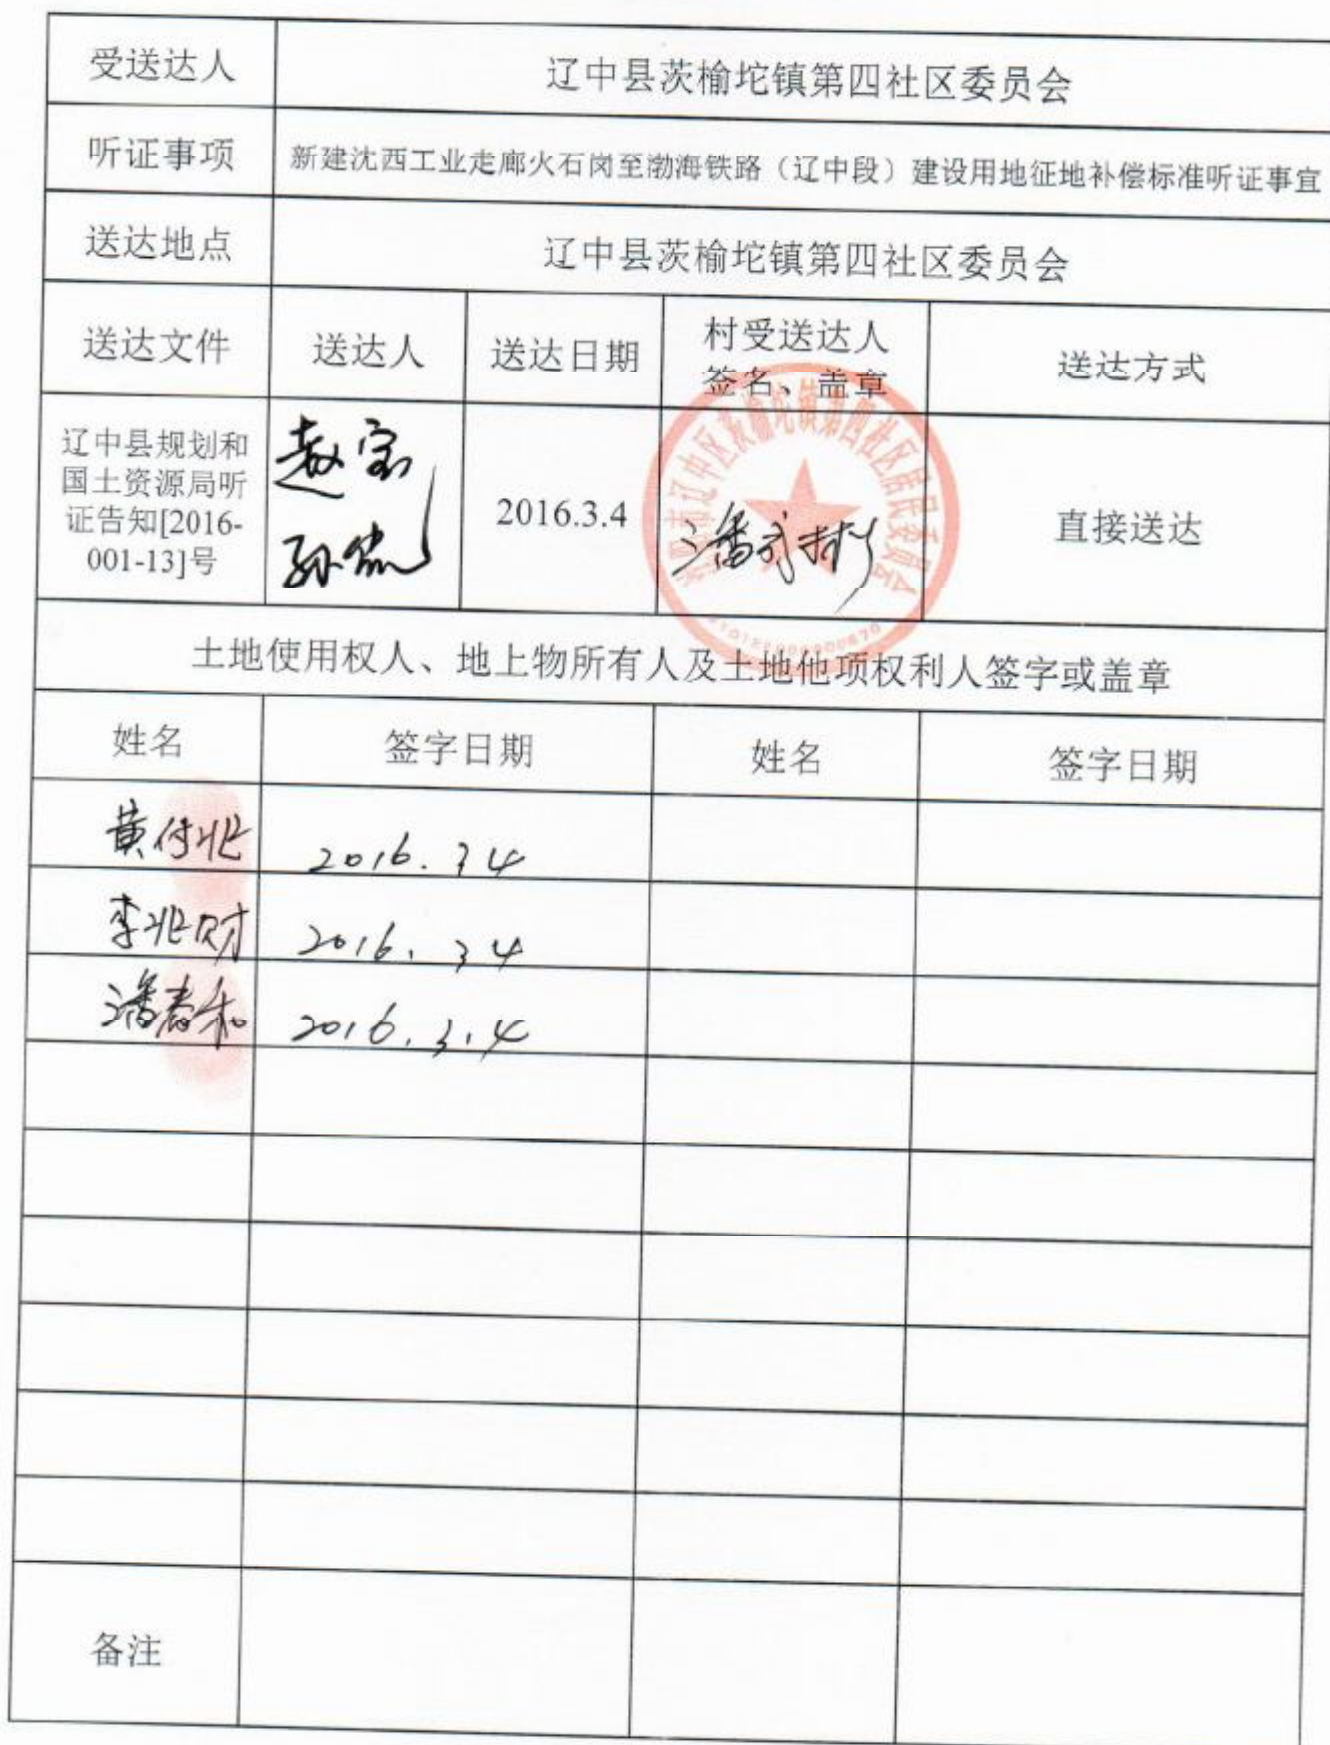 受送达人 辽中县茨榆坨镇第四社区委员会
听证事项 新建沈西工业走廊火石岗至渤海铁路（辽中段）建设用地征地补偿标准听证事宜
送达地点 辽中县茨榆坨镇第四社区委员会
送达文件 送达人 送达日期 村受送达人 送达方式
签名、盖章
辽中县规划和
国土资源局听
证告知[2016-
001-13]号
赵宝
孙
2016.3.4
潘
直接送达
辽中区茨榆坨镇第四社区居民委员会
土地使用权人、地上物所有人及土地他项权利人签字或盖章
姓名 签字日期 姓名 签字日期
黄 2016.3 4
李兆财 2016.3 4
潘春和 2016.3.4
备注